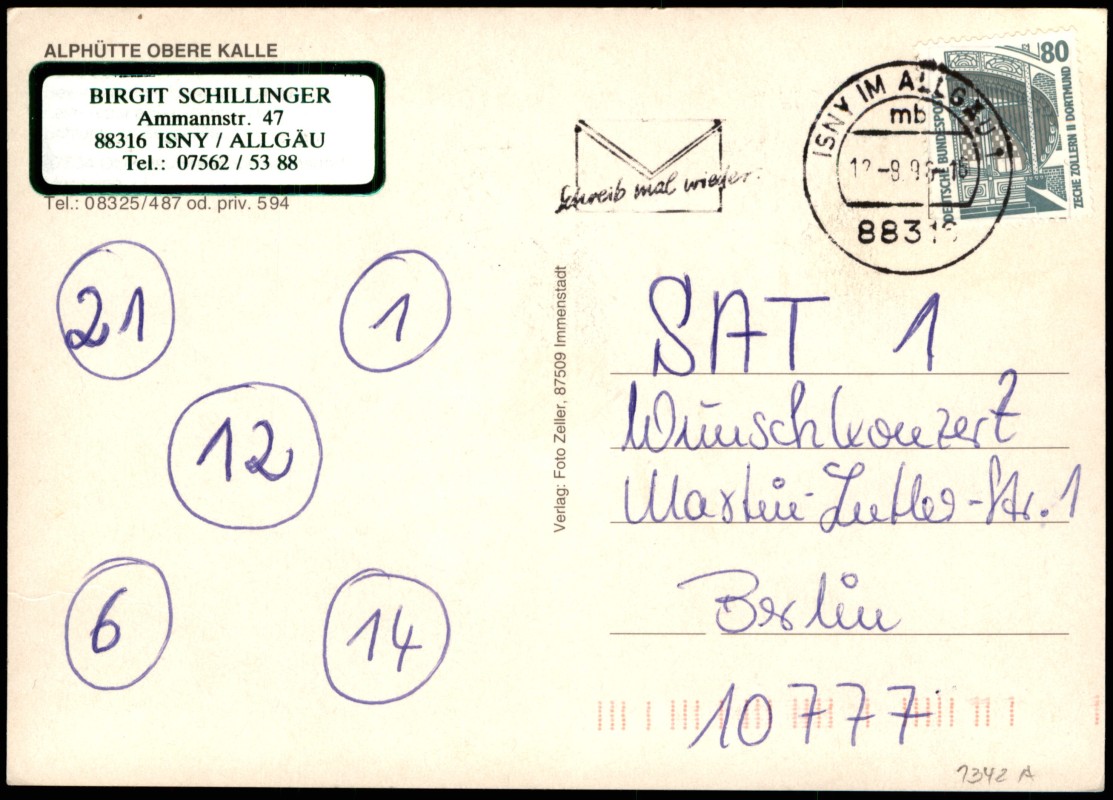 ALPHÜTTE OBERE KALLE
BIRGIT SCHILLINGER
Ammannstr. 47
88316 ISNY / ALLGÄU
Tel.: 07562 / 53 88
Tel.: 08325/487 od. priv. 594
21
1
12
6
14
Verlag: Foto Zeller, 87509 Immenstadt
Schreib mal wieder.
ISNY IM ALLGÄU 1
mb
88316
80
DEUTSCHE BUNDESPOST
ZECHE ZOLLERN II DORTMUND
SAT 1
Wunschkonzert
Martin-Luther-Str. 1
Berlin
10777
1342 A